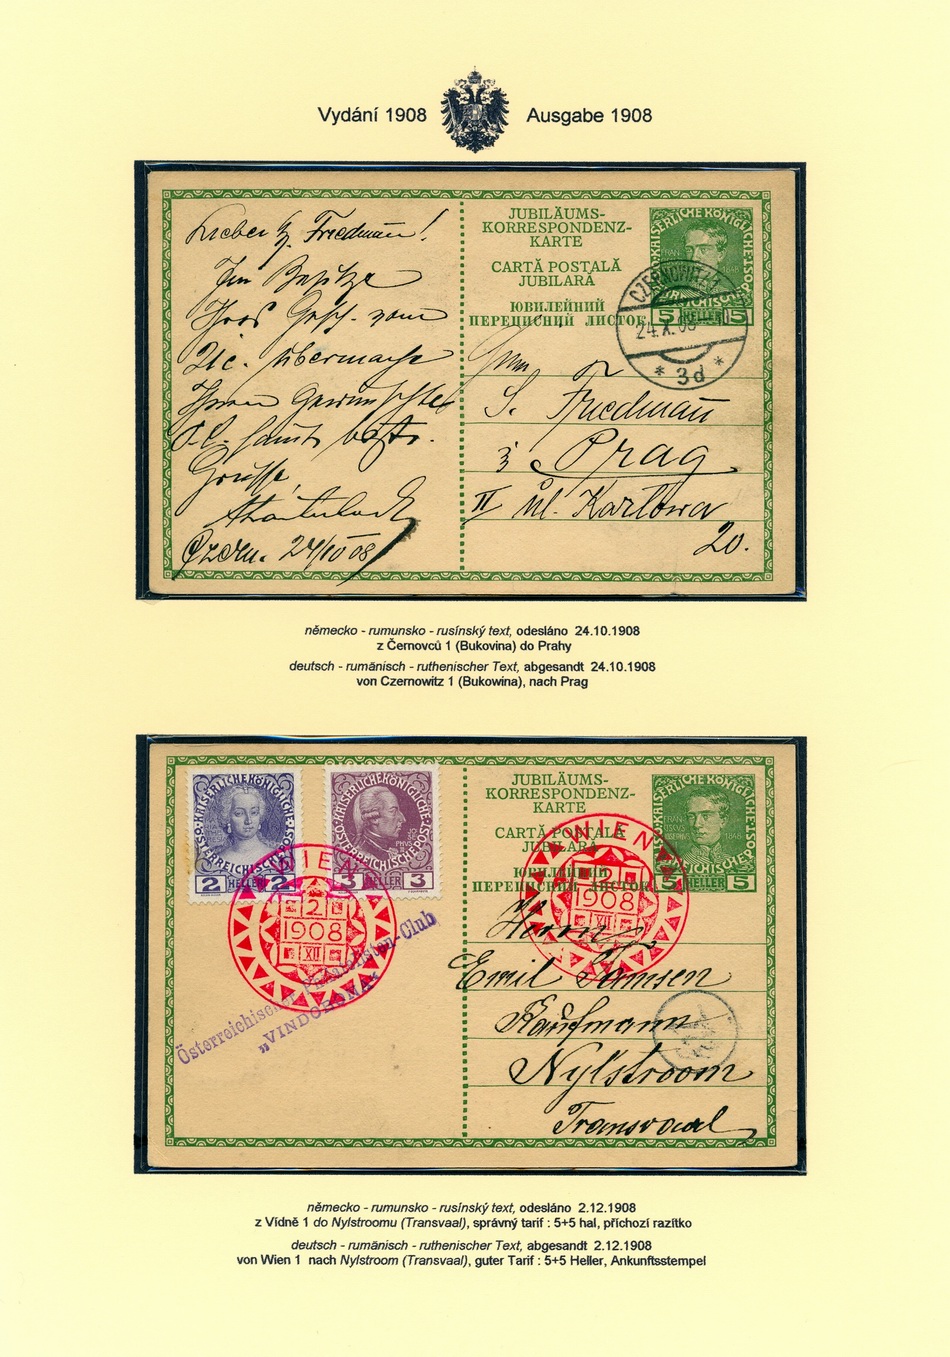 Vydání 1908 Ausgabe 1908
Lieber H. Friedmann!
Im Besitze
Ihres Gesch. vom
übermache
Ihnen Gewünschtes
samt besten
Grüsse,
Czern. 24/10 08
JUBILÄUMS-
KORRESPONDENZ-
KARTE
CARTĂ POSTALĂ
JUBILARĂ
ЮВИЛЕЙНИЙ
ПЕРЕПИСНИЙ ЛИСТОК
KAISERLICHE KÖNIGLICHE ÖSTERREICHISCHE POST
5 HELLER 5
CZERNOWITZ 1
24.X.08
* 3d *
Herrn
S. Friedmann
Prag
II ul. Karlowa
20.
německo - rumunsko - rusínský text, odesláno 24.10.1908
z Černovců 1 (Bukovina) do Prahy
deutsch - rumänisch - ruthenischer Text, abgesandt 24.10.1908
von Czernowitz 1 (Bukowina), nach Prag
KAISERLICHE KÖNIGLICHE ÖSTERREICHISCHE POST
2 HELLER 2
KAISERLICHE KÖNIGLICHE ÖSTERREICHISCHE POST
3 HELLER 3
WIEN 1
2
1908
XII
Österreichischer Philatelisten-Club
„VINDOBONA“
JUBILÄUMS-
KORRESPONDENZ-
KARTE
CARTĂ POSTALĂ
JUBILARĂ
ЮВИЛЕЙНИЙ
ПЕРЕПИСНИЙ ЛИСТОК
KAISERLICHE KÖNIGLICHE ÖSTERREICHISCHE POST
FRANCISCUS JOSEPHUS I 1848
5 HELLER 5
WIEN 1
2
1908
XII
Herrn
Emil Samsen
Kaufmann
Nylstroom
Transvaal
německo - rumunsko - rusínský text, odesláno 2.12.1908
z Vídně 1 do Nylstroomu (Transvaal), správný tarif : 5+5 hal, příchozí razítko
deutsch - rumänisch - ruthenischer Text, abgesandt 2.12.1908
von Wien 1 nach Nylstroom (Transvaal), guter Tarif : 5+5 Heller, Ankunftsstempel